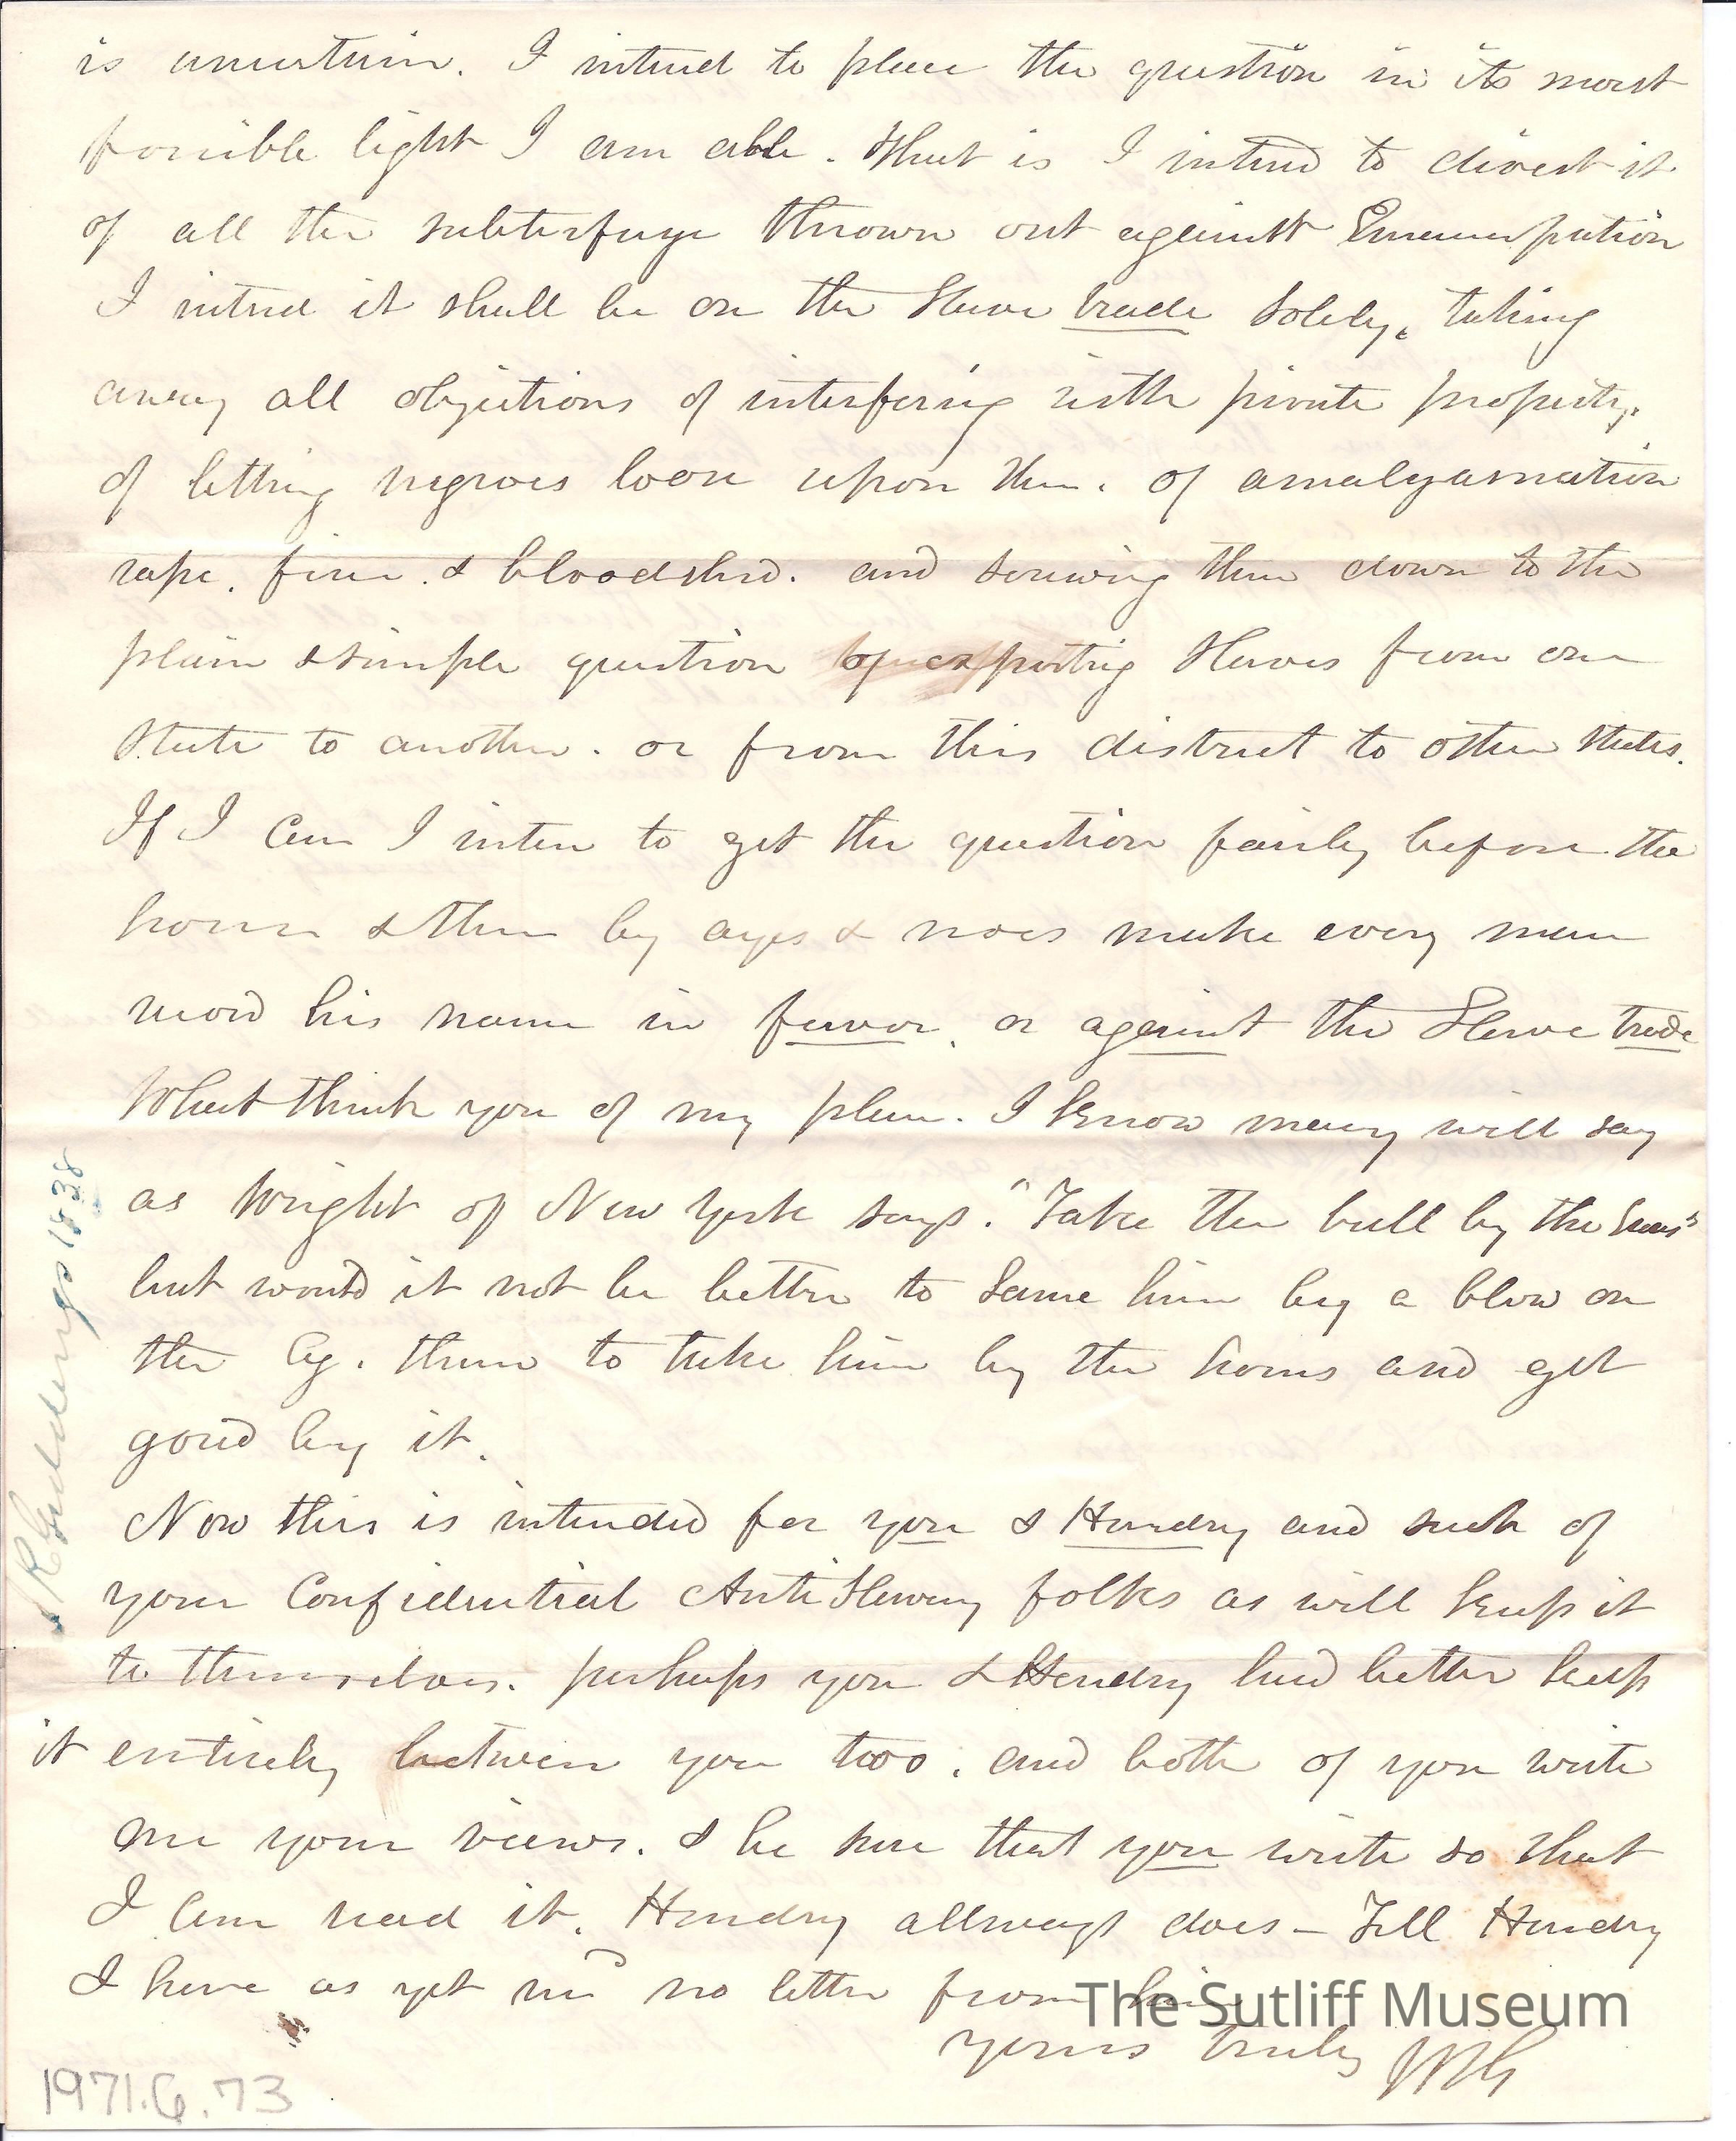 is uncertain. I intend to place the question in its most
forcible light I am able. that is I intend to divest it
of all the subterfuge thrown out against Emancipation
I intend it shall be on the Slave trade Solely, taking
away all objections of interfering with private property,
of letting negroes loose upon them. of amalgamation
rape. fire. & bloodshed. and screwing them down to the
plain & simple question of exporting Slaves from one
State to another. or from this district to other States.
If I can I inten to get the question fairly before the
house & then by ayes & noes make every man
record his name in favor, or against the Slave trade
What think you of my plan. I know many will say
as Wright of New York says. "Take the bull by the horns"
but would it not be better to lame him by a blow on
the leg. than to take him by the horns and get
gored by it.
Now this is intended for you & Hendry and such of
your Confidential Anti Slavery folks as will keep it
to themselves. perhaps you & Hendry had better keep
it entirely between you two. and both of you write
me your views. & be sure that you write so that
I can read it. Hendry allways does – Tell Hendry
I have as yet recd no letter from him
yours truly JRG
J R Giddings 1838
The Sutliff Museum
1971.6.73